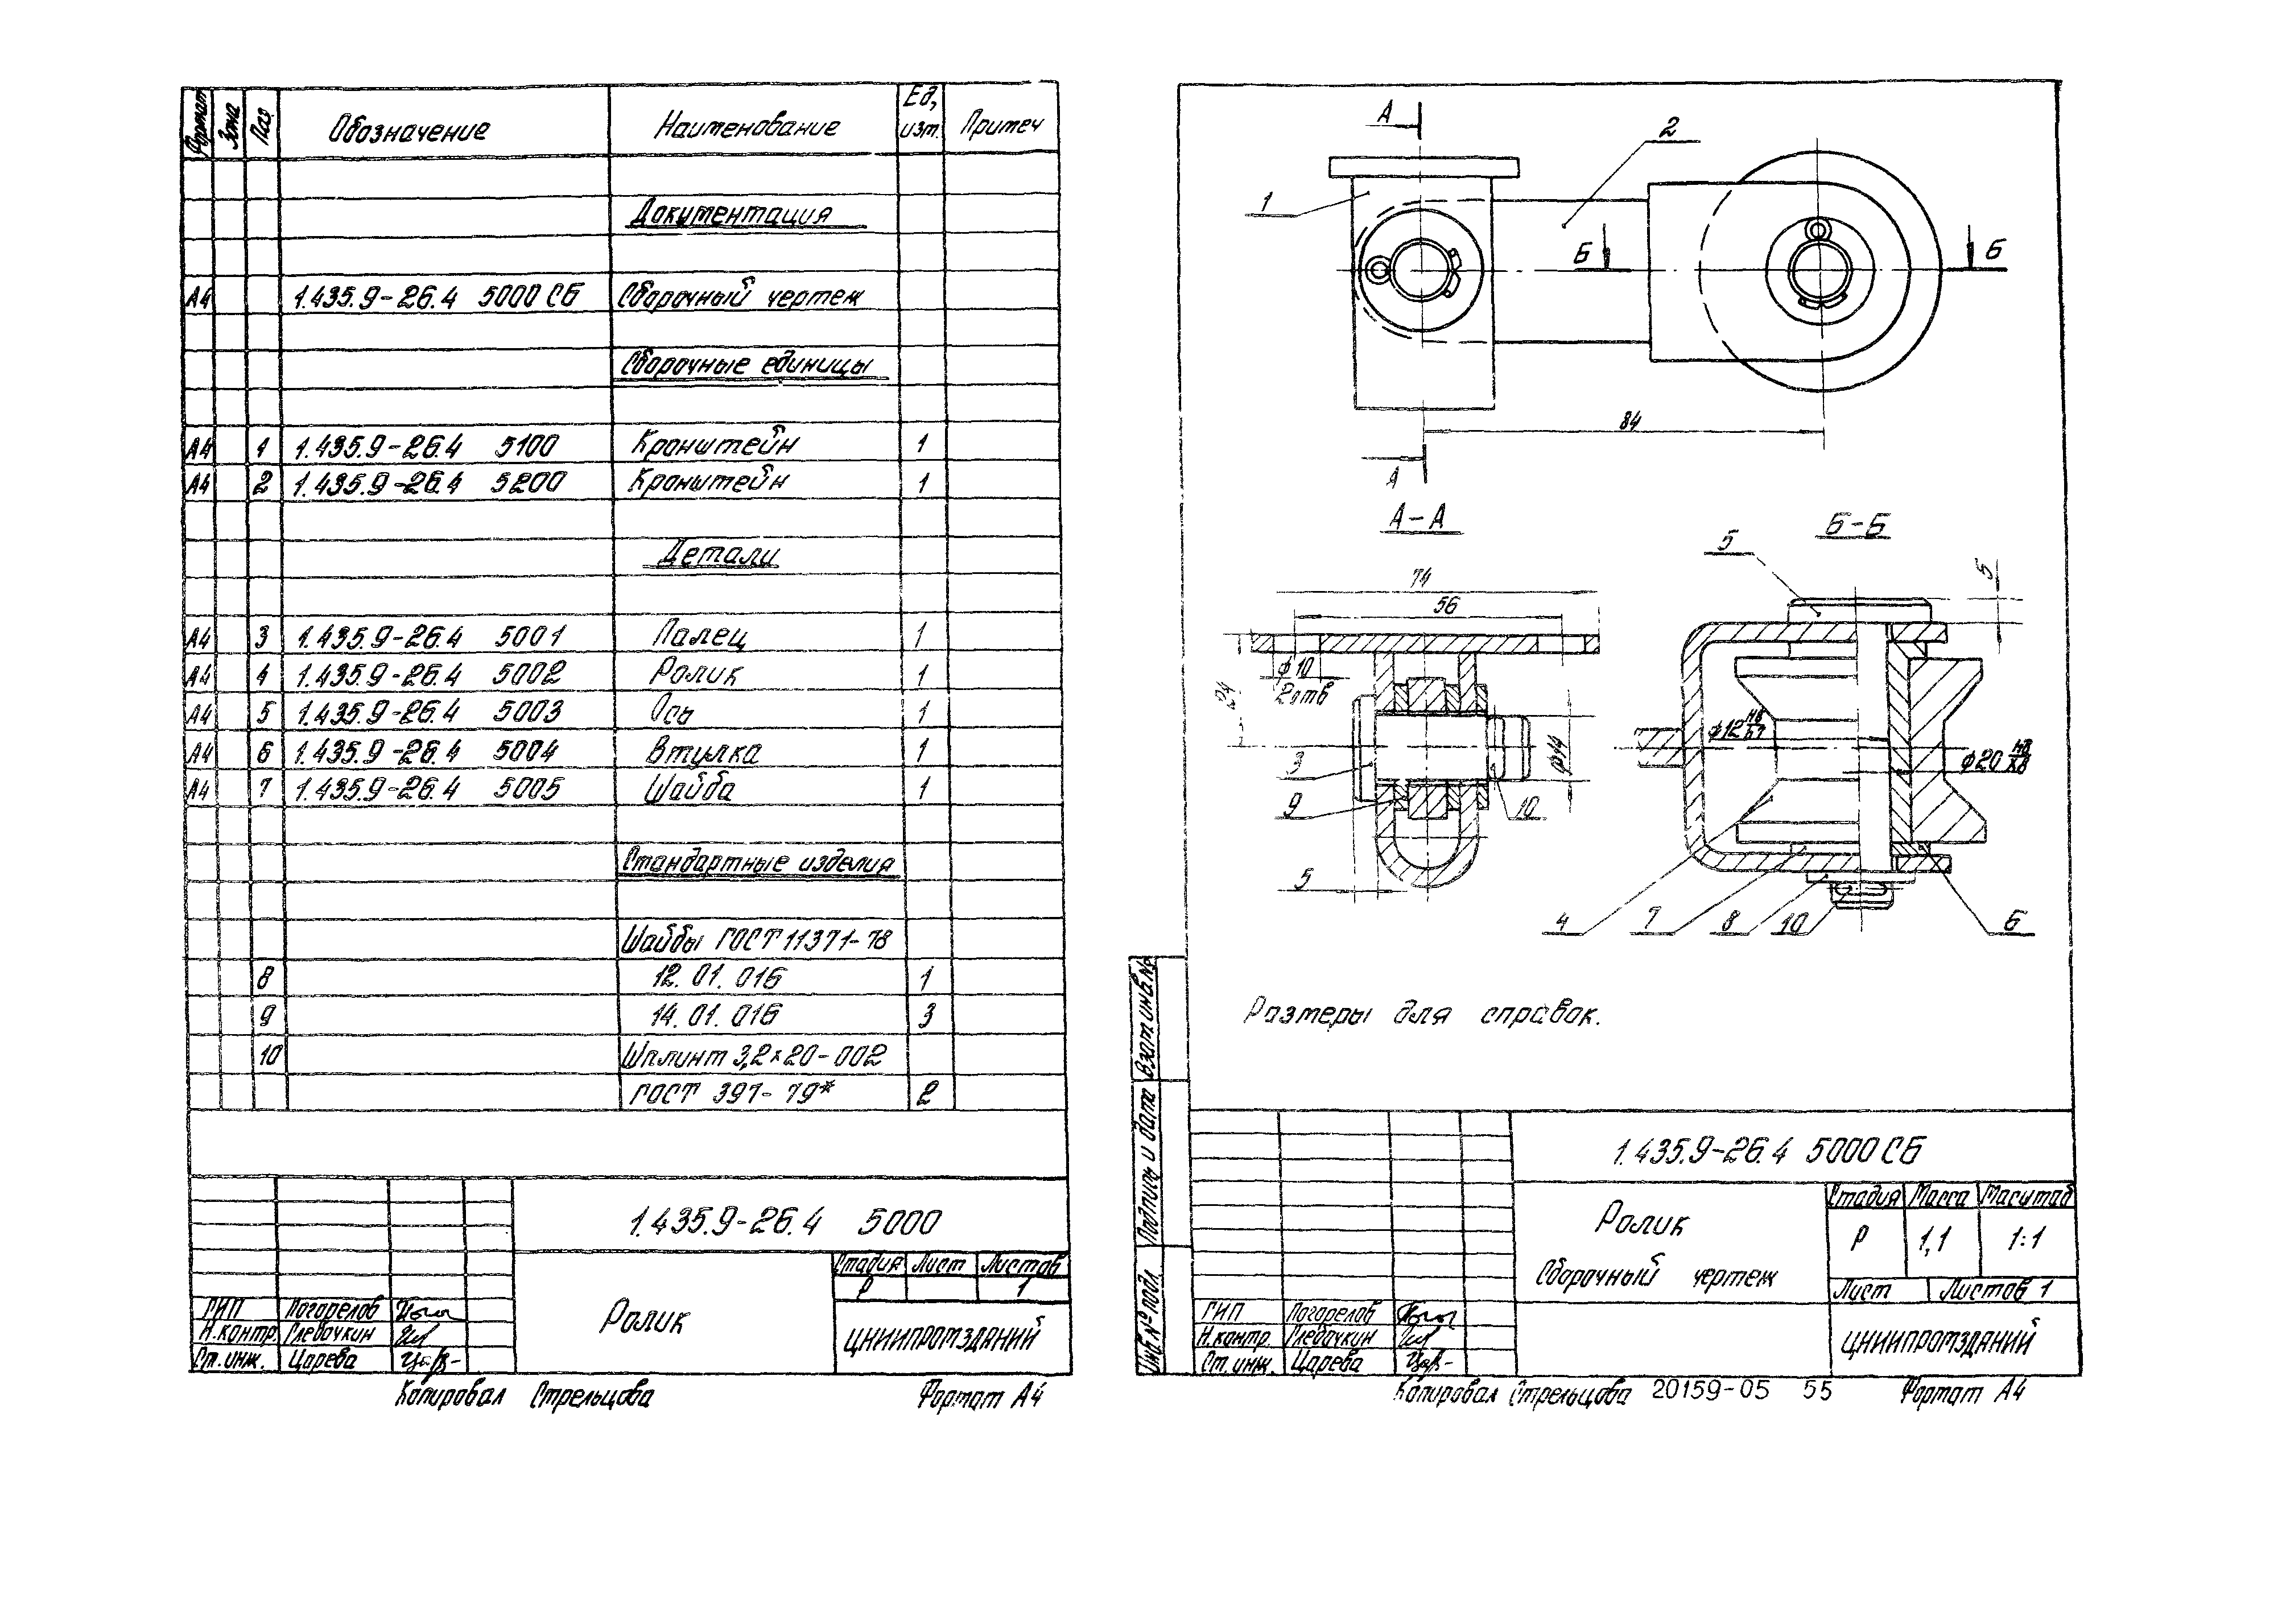 Формат Зона Поз. Обозначение Наименование Ед, изм. Примеч
Документация
А4 1.435.9-26.4 5000 СБ Сборочный чертеж
Сборочные единицы
А4 1 1.435.9-26.4 5100 Кронштейн 1
А4 2 1.435.9-26.4 5200 Кронштейн 1
Детали
А4 3 1.435.9-26.4 5001 Палец 1
А4 4 1.435.9-26.4 5002 Ролик 1
А4 5 1.435.9-26.4 5003 Ось 1
А4 6 1.435.9-26.4 5004 Втулка 1
А4 7 1.435.9-26.4 5005 Шайба 1
Стандартные изделия
Шайбы ГОСТ 11371-78
8 12.01.016 1
9 14.01.016 3
10 Шплинт 3,2×20-002
ГОСТ 397-79* 2
1.435.9-26.4 5000
Стадия Лист Листов
Р 1
Ролик
ЦНИИПРОМЗДАНИЙ
ГИП Погорелов
Н.контр. Глевочкин
Ст.инж. Царева
Копировал Стрельцова Формат А4
А
2
1
Б Б
84
А
А-А
Б-Б
5
5
74
56
ф10
2отв
24
3
9
10
ф14
5
ф12 H8/h7
ф20 H8/k8
4 7 8 10 6
Размеры для справок.
Взам.инв.№
Подпись и дата
Инв.№ подл.
1.435.9-26.4 5000 СБ
Ролик
Сборочный чертеж
Стадия Масса Масштаб
Р 1,1 1:1
Лист Листов 1
ЦНИИПРОМЗДАНИЙ
ГИП Погорелов
Н.контр. Глевочкин
Ст.инж. Царева
Копировал Стрельцова 20159-05 55 Формат А4